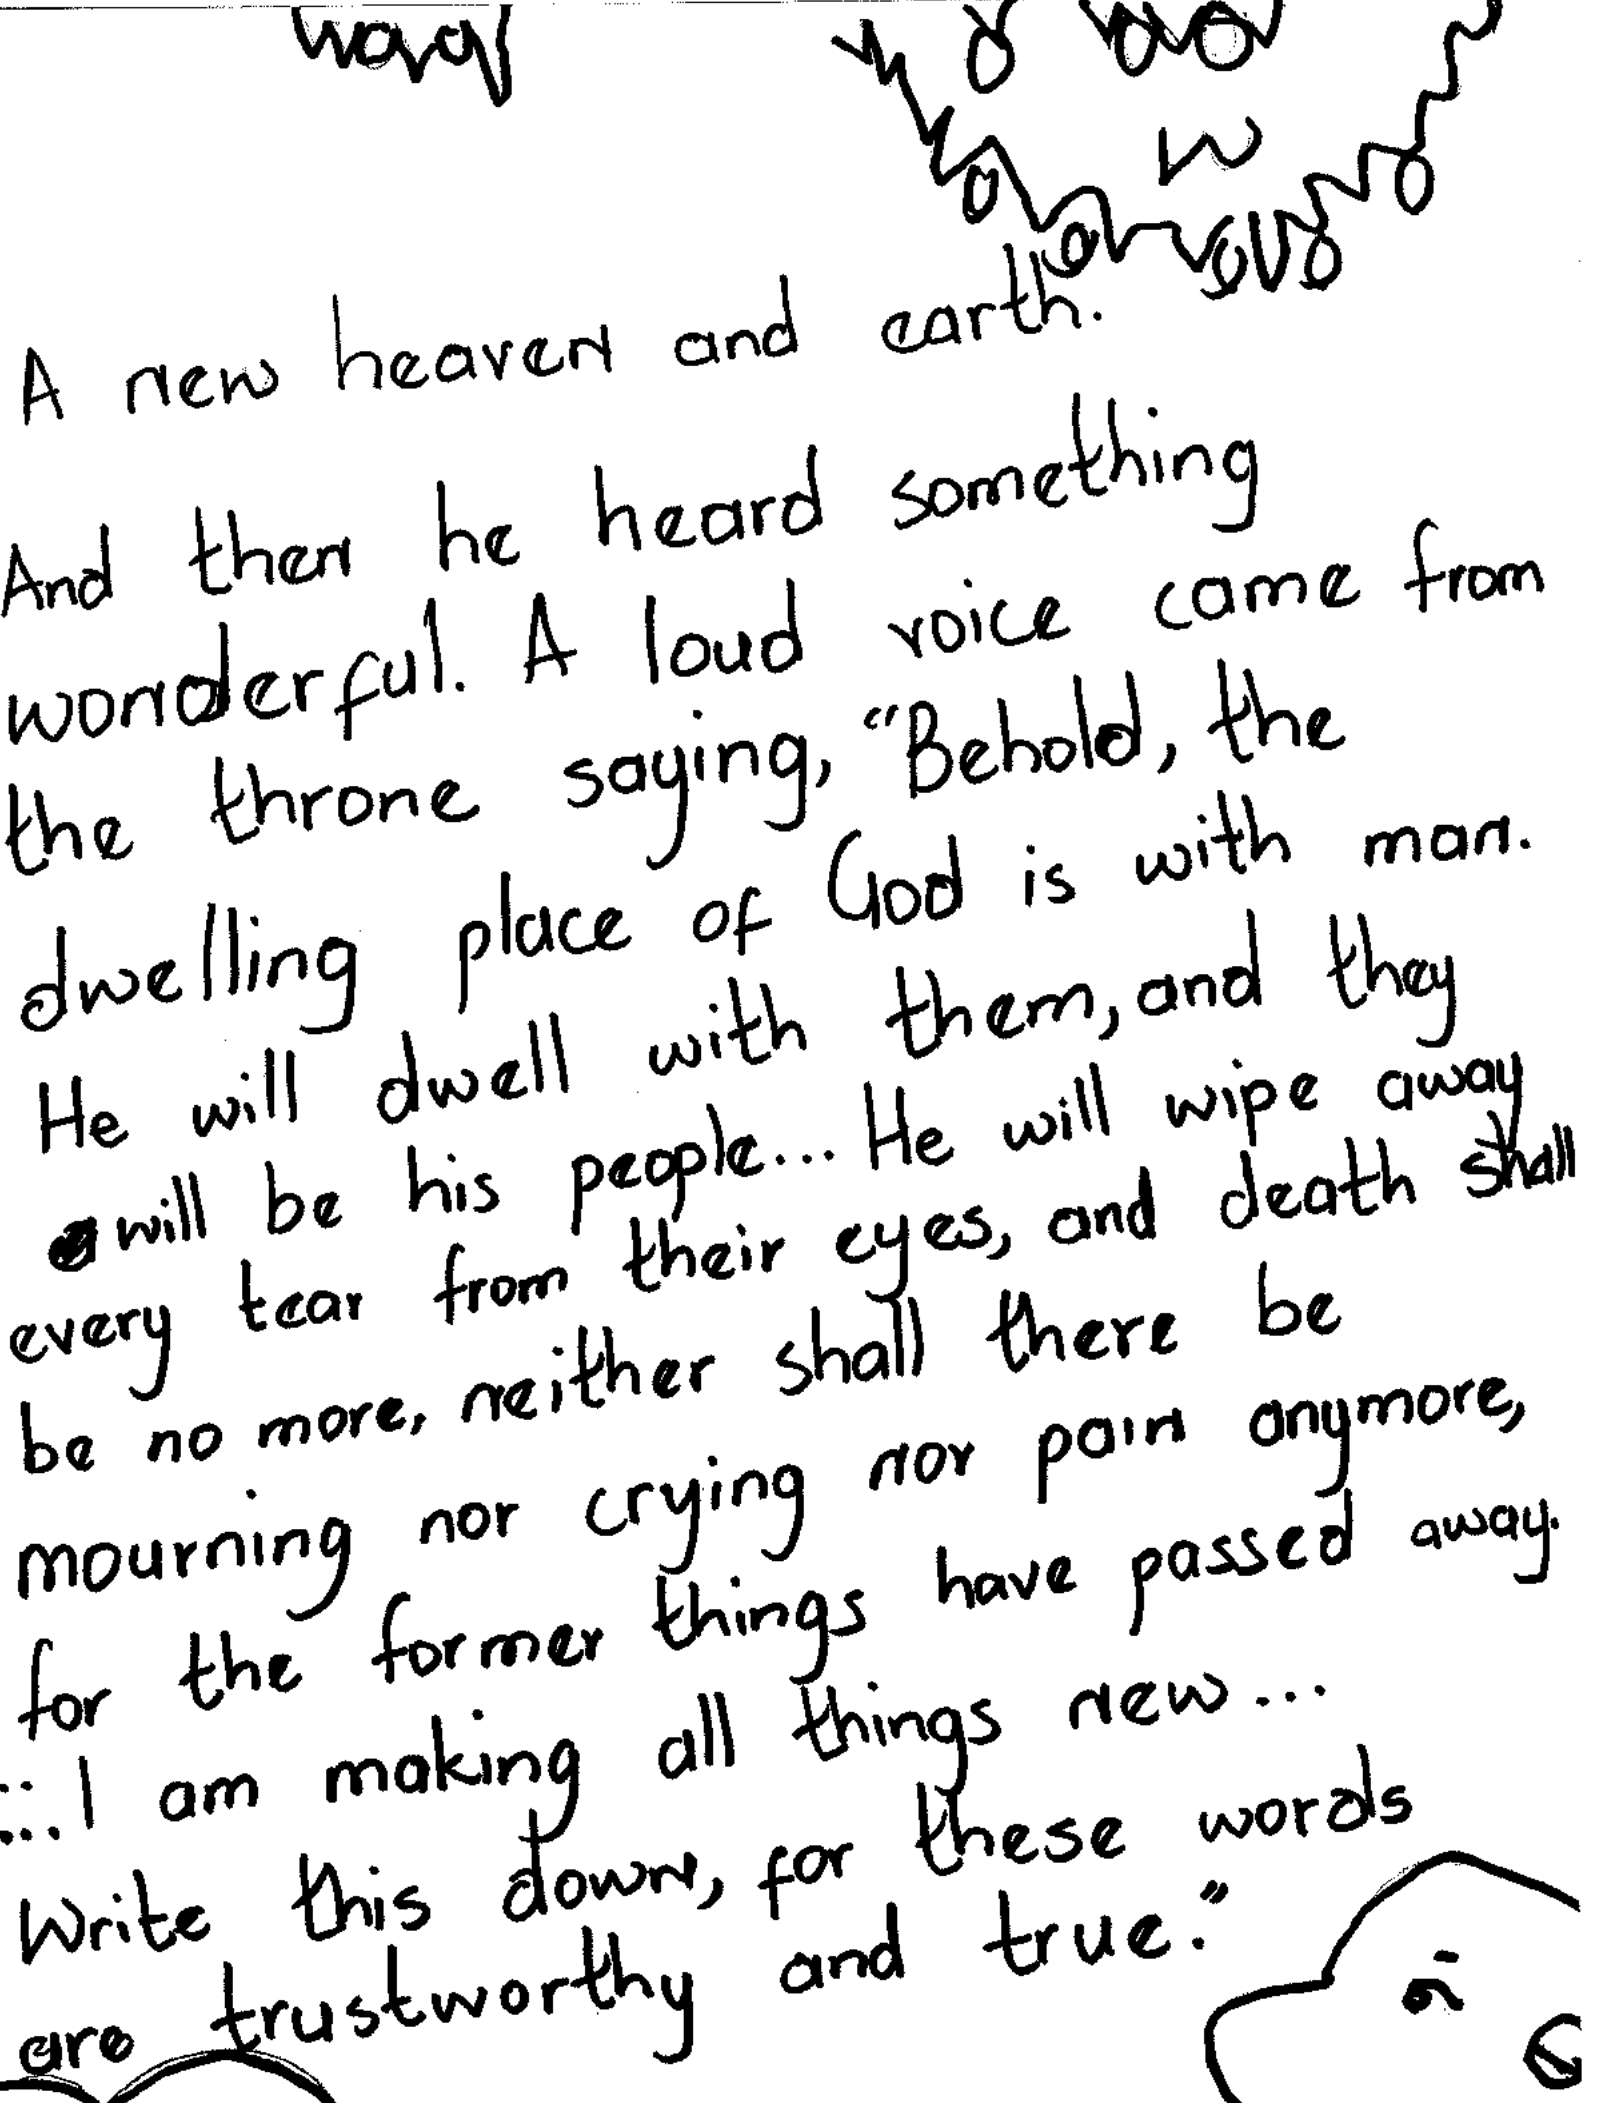 A new heaven and earth.
And then he heard something
wonderful. A loud voice came from
the throne saying, "Behold, the
dwelling place of God is with man.
He will dwell with them, and they
will be his people... He will wipe away
every tear from their eyes, and death shall
be no more, neither shall there be
mourning nor crying nor pain anymore,
for the former things have passed away.
...I am making all things new...
Write this down, for these words
are trustworthy and true."